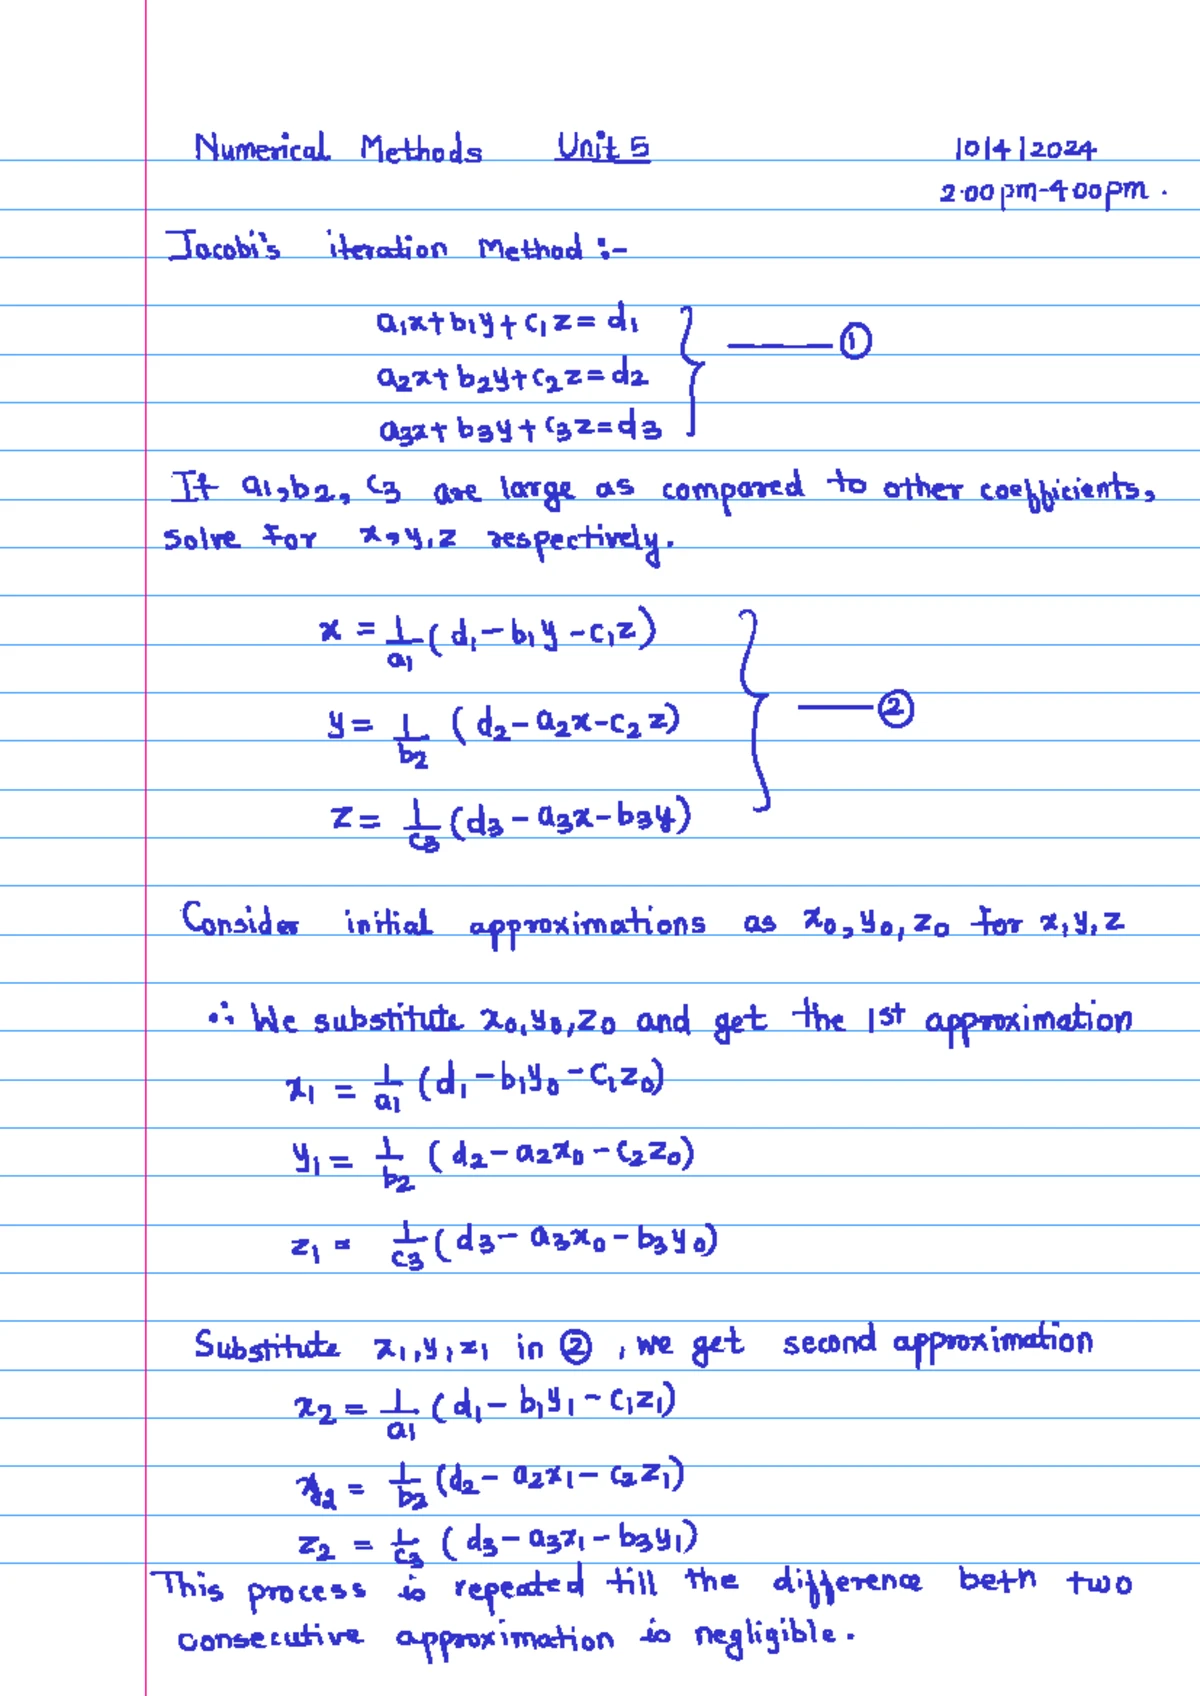 Numerical Methods Unit 5 10|4|2024
2·00 pm-4·00 pm.
Jacobi's iteration Method :-
a₁x+b₁y+c₁z=d₁
a₂x+b₂y+c₂z=d₂ ——— ①
a₃x+b₃y+c₃z=d₃
If a₁,b₂, c₃ are large as compared to other coefficients,
Solve for x,y,z respectively.
x = 1/a₁ (d₁-b₁y-c₁z)
y = 1/b₂ (d₂-a₂x-c₂z) ——— ②
z = 1/c₃ (d₃-a₃x-b₃y)
Consider initial approximations as x₀, y₀, z₀ for x, y, z
∴ We substitute x₀,y₀,z₀ and get the 1st approximation
x₁ = 1/a₁ (d₁-b₁y₀-c₁z₀)
y₁ = 1/b₂ (d₂-a₂x₀-c₂z₀)
z₁ = 1/c₃ (d₃-a₃x₀-b₃y₀)
Substitute x₁,y₁z₁ in ②, we get second approximation
x₂ = 1/a₁ (d₁-b₁y₁-c₁z₁)
y₂ = 1/b₂ (d₂-a₂x₁-c₂z₁)
z₂ = 1/c₃ (d₃-a₃x₁-b₃y₁)
This process is repeated till the difference betn two
consecutive approximation is negligible.